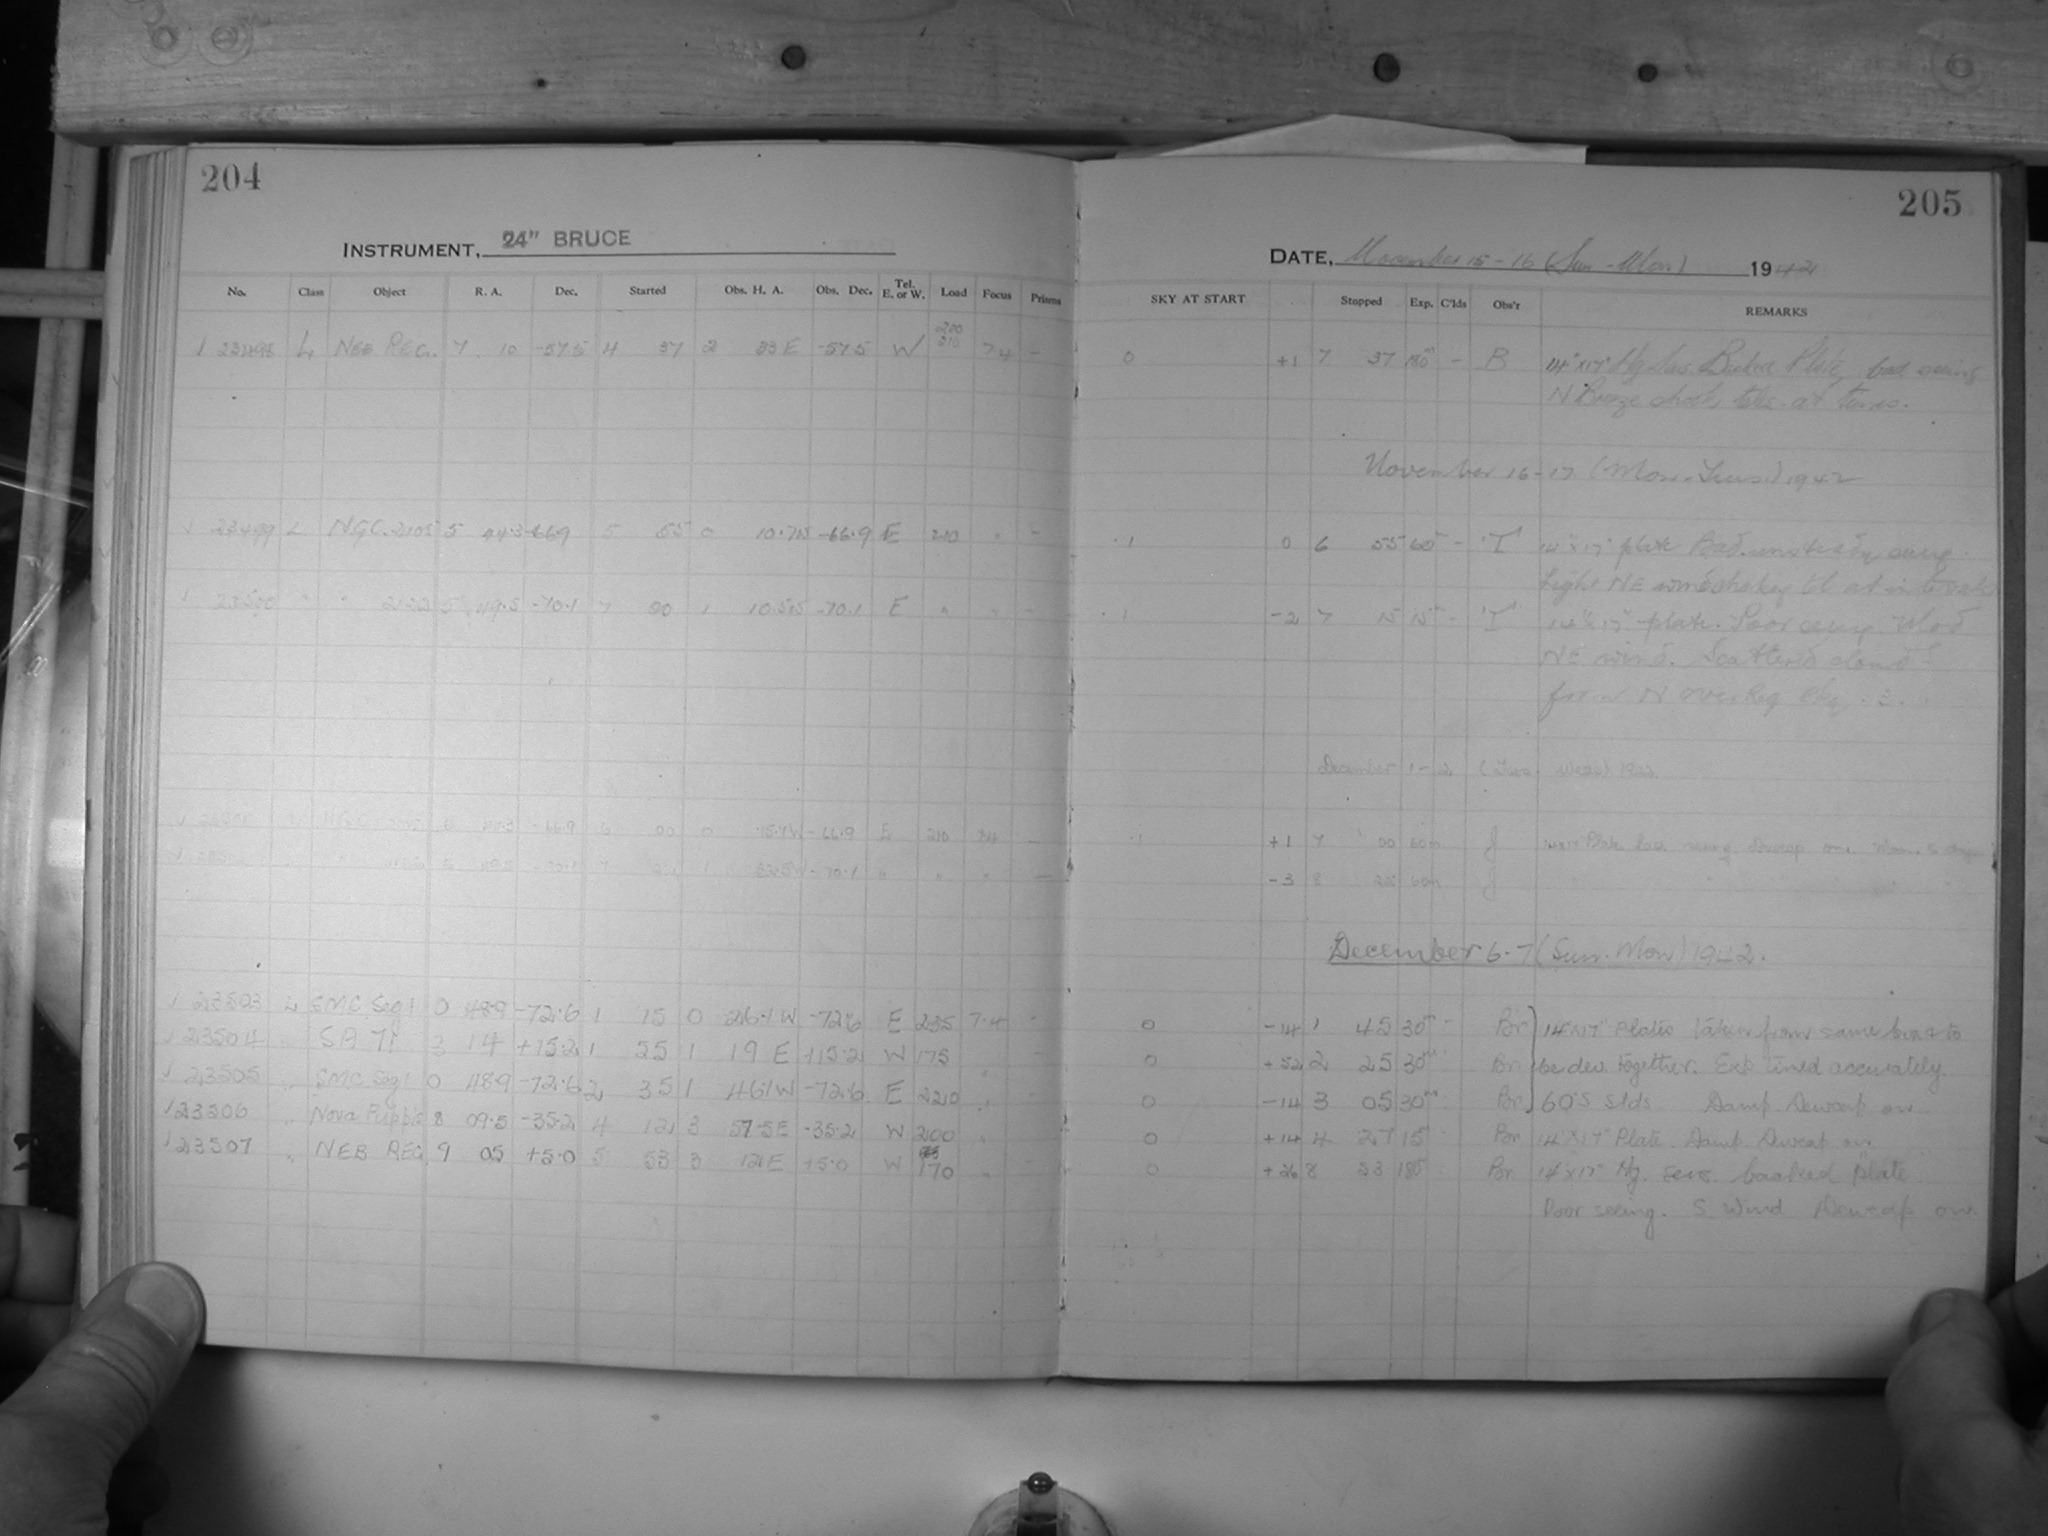 204
INSTRUMENT, 24" BRUCE
No. Class Object R. A. Dec. Started Obs. H. A. Obs. Dec. Tel. E. or W. Load Focus Prisms
√ 23498 L NEB REG. 7 10 -57.5 4 37 2 33 E -57.5 W 220 210 7.4 -
√ 23499 L NGC. 5 44.3 -66.9 5 55 0 10.7 -66.9 E 210 " -
√ 23500 " " 5 49.5 -70.1 7 00 1 10.5 -70.1 E " " -
5 44.3 -66.9 6 00 0 15.7W -66.9 E 210 7.4 -
-70.1 7 1 -70.1 " " " -
√ 23503 L SMC Seg 1 0 48.9 -72.6 1 15 0 26.1 W -72.6 E 235 7.4 -
√ 23504 " SA 71 3 14 +15.2 1 55 1 19 E +15.2 W 175 -
√ 23505 " SMC Seg 1 0 48.9 -72.6 2 35 1 46.1W -72.6 E 220 "
√ 23506 " Nova Puppis 8 09.5 -35.2 4 12 3 57.5E -35.2 W 200 "
√ 23507 " NEB REG 9 05 +5.0 5 53 3 12 E +5.0 W 170 " -
205
DATE, November 15-16 (Sun-Mon) 1942
SKY AT START Stopped Exp. C'lds Obs'r REMARKS
0 +1 7 37 180m - B 14"x17" Hg Sens. Baked Plate, bad seeing
N Breeze shook tels. at times.
November 16-17 (Mon-Tues) 1942
.1 0 6 55 60m - T 14"x17" plate Bad unsteady seeing.
Light NE wind
.1 -2 7 15 15m - T 14"x17" plate. Poor seeing. Mod
NE wind. Scattered clouds
from N
December 1-2 (Tues Weds) 1942
.1 +1 7 00 60m J 14x17 Plate bad seeing Dewcap on.
-3 8 60m J
December 6-7 (Sun-Mon) 1942.
0 -14 1 45 30m - Bn 14"x17" Plates taken from same box to
0 +52 2 25 30m Bn be dev. together. Exp timed accurately
0 -14 3 05 30m Bn 60's slds Damp Dewcap on
0 +14 4 27 15 Bn 14"x17" Plate. Damp Dewcap on
0 +26 8 53 180 Bn 14"x17" Hg. sens. baked plate
Poor seeing. S. Wind Dewcap on.